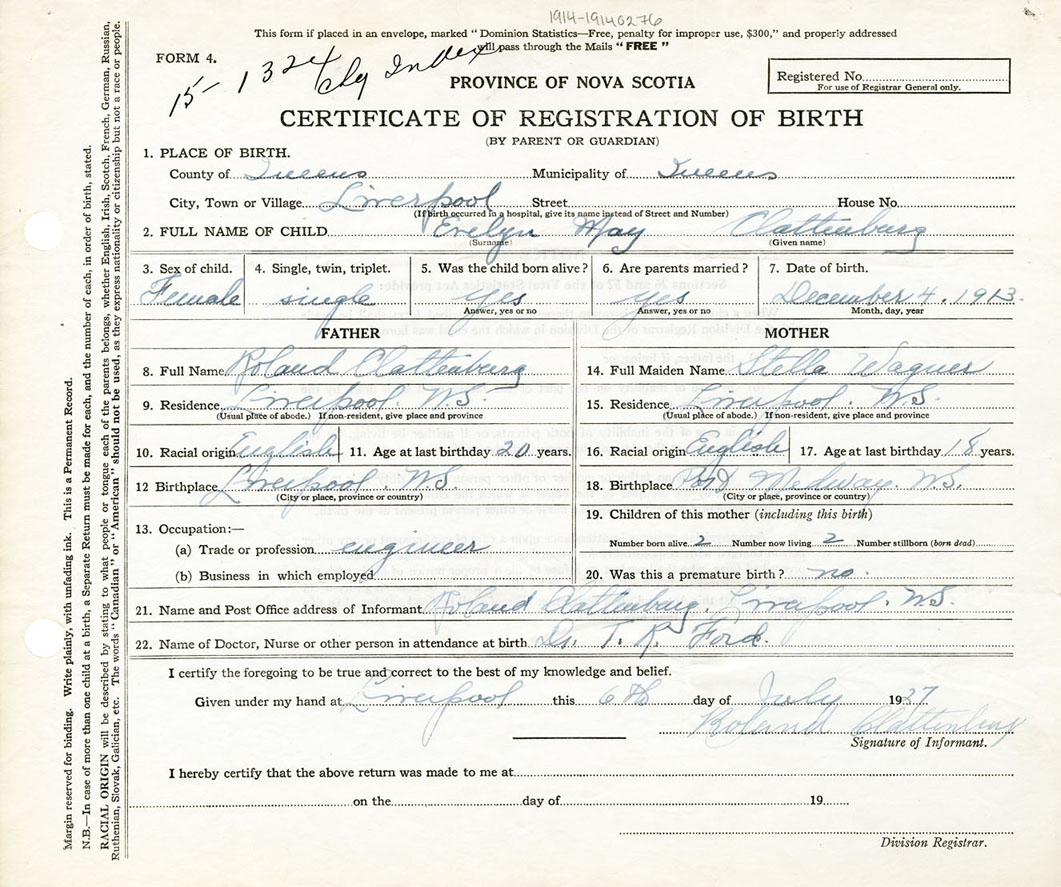 1914-19140276
This form if placed in an envelope, marked "Dominion Statistics—Free, penalty for improper use, $300," and properly addressed
will pass through the Mails "FREE"
FORM 4.
15- 1324
PROVINCE OF NOVA SCOTIA
Registered No.
For use of Registrar General only.
CERTIFICATE OF REGISTRATION OF BIRTH
(BY PARENT OR GUARDIAN)
1. PLACE OF BIRTH.
County of Queens Municipality of Queens
City, Town or Village Liverpool Street House No.
(If birth occurred in a hospital, give its name instead of Street and Number)
2. FULL NAME OF CHILD Evelyn May Clattenburg
(Surname) (Given name)
3. Sex of child. 4. Single, twin, triplet. 5. Was the child born alive? 6. Are parents married? 7. Date of birth.
Female single Yes Yes December 4. 1913.
Answer, yes or no Answer, yes or no Month, day, year
FATHER MOTHER
8. Full Name Roland Clattenburg 14. Full Maiden Name Stella Wagner
9. Residence Liverpool. N.S. 15. Residence Liverpool. N.S.
(Usual place of abode.) If non-resident, give place and province (Usual place of abode.) If non-resident, give place and province
10. Racial origin English 11. Age at last birthday 20 years. 16. Racial origin English 17. Age at last birthday 18 years.
12 Birthplace Liverpool. N.S. 18. Birthplace Port Medway. N.S.
(City or place, province or country) (City or place, province or country)
19. Children of this mother (including this birth)
13. Occupation:—
Number born alive 2 Number now living 2 Number stillborn (born dead)
(a) Trade or profession engineer
(b) Business in which employed 20. Was this a premature birth? no.
21. Name and Post Office address of Informant Roland Clattenburg. Liverpool. N.S.
22. Name of Doctor, Nurse or other person in attendance at birth Dr. T. R. Ford.
I certify the foregoing to be true and correct to the best of my knowledge and belief.
Given under my hand at Liverpool this 6th day of July 1937
Roland Clattenburg
Signature of Informant.
I hereby certify that the above return was made to me at
on the day of 19
Division Registrar.
Margin reserved for binding. Write plainly, with unfading ink. This is a Permanent Record.
N.B.—In case of more than one child at a birth, a Separate Return must be made for each, and the number of each, in order of birth, stated.
RACIAL ORIGIN will be described by stating to what people or tongue each of the parents belongs, whether English, Irish, Scotch, French, German, Russian,
Ruthenian, Slovak, Galician, etc. The words "Canadian" or "American" should not be used, as they express nationality or citizenship but not a race or people.